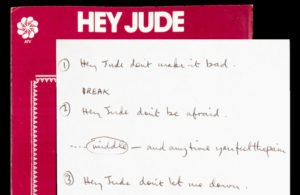 HEY JUDE
ATV
HEY JUDE
① Hey Jude dont make it bad.
BREAK
② Hey Jude don't be afraid.
.... middle — and any time you feel the pain
③ Hey Jude don't let me down.